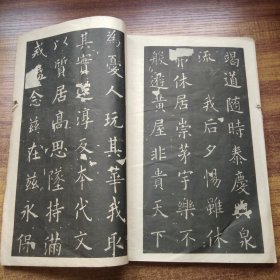 竭道隨時泰慶泉
流我后夕惕雖休
休居崇茅宇樂不
般遊黃屋非貴天下
為憂人玩其華我取
其實淳反本代文
以質居高思墜持滿
戒念茲在茲永保